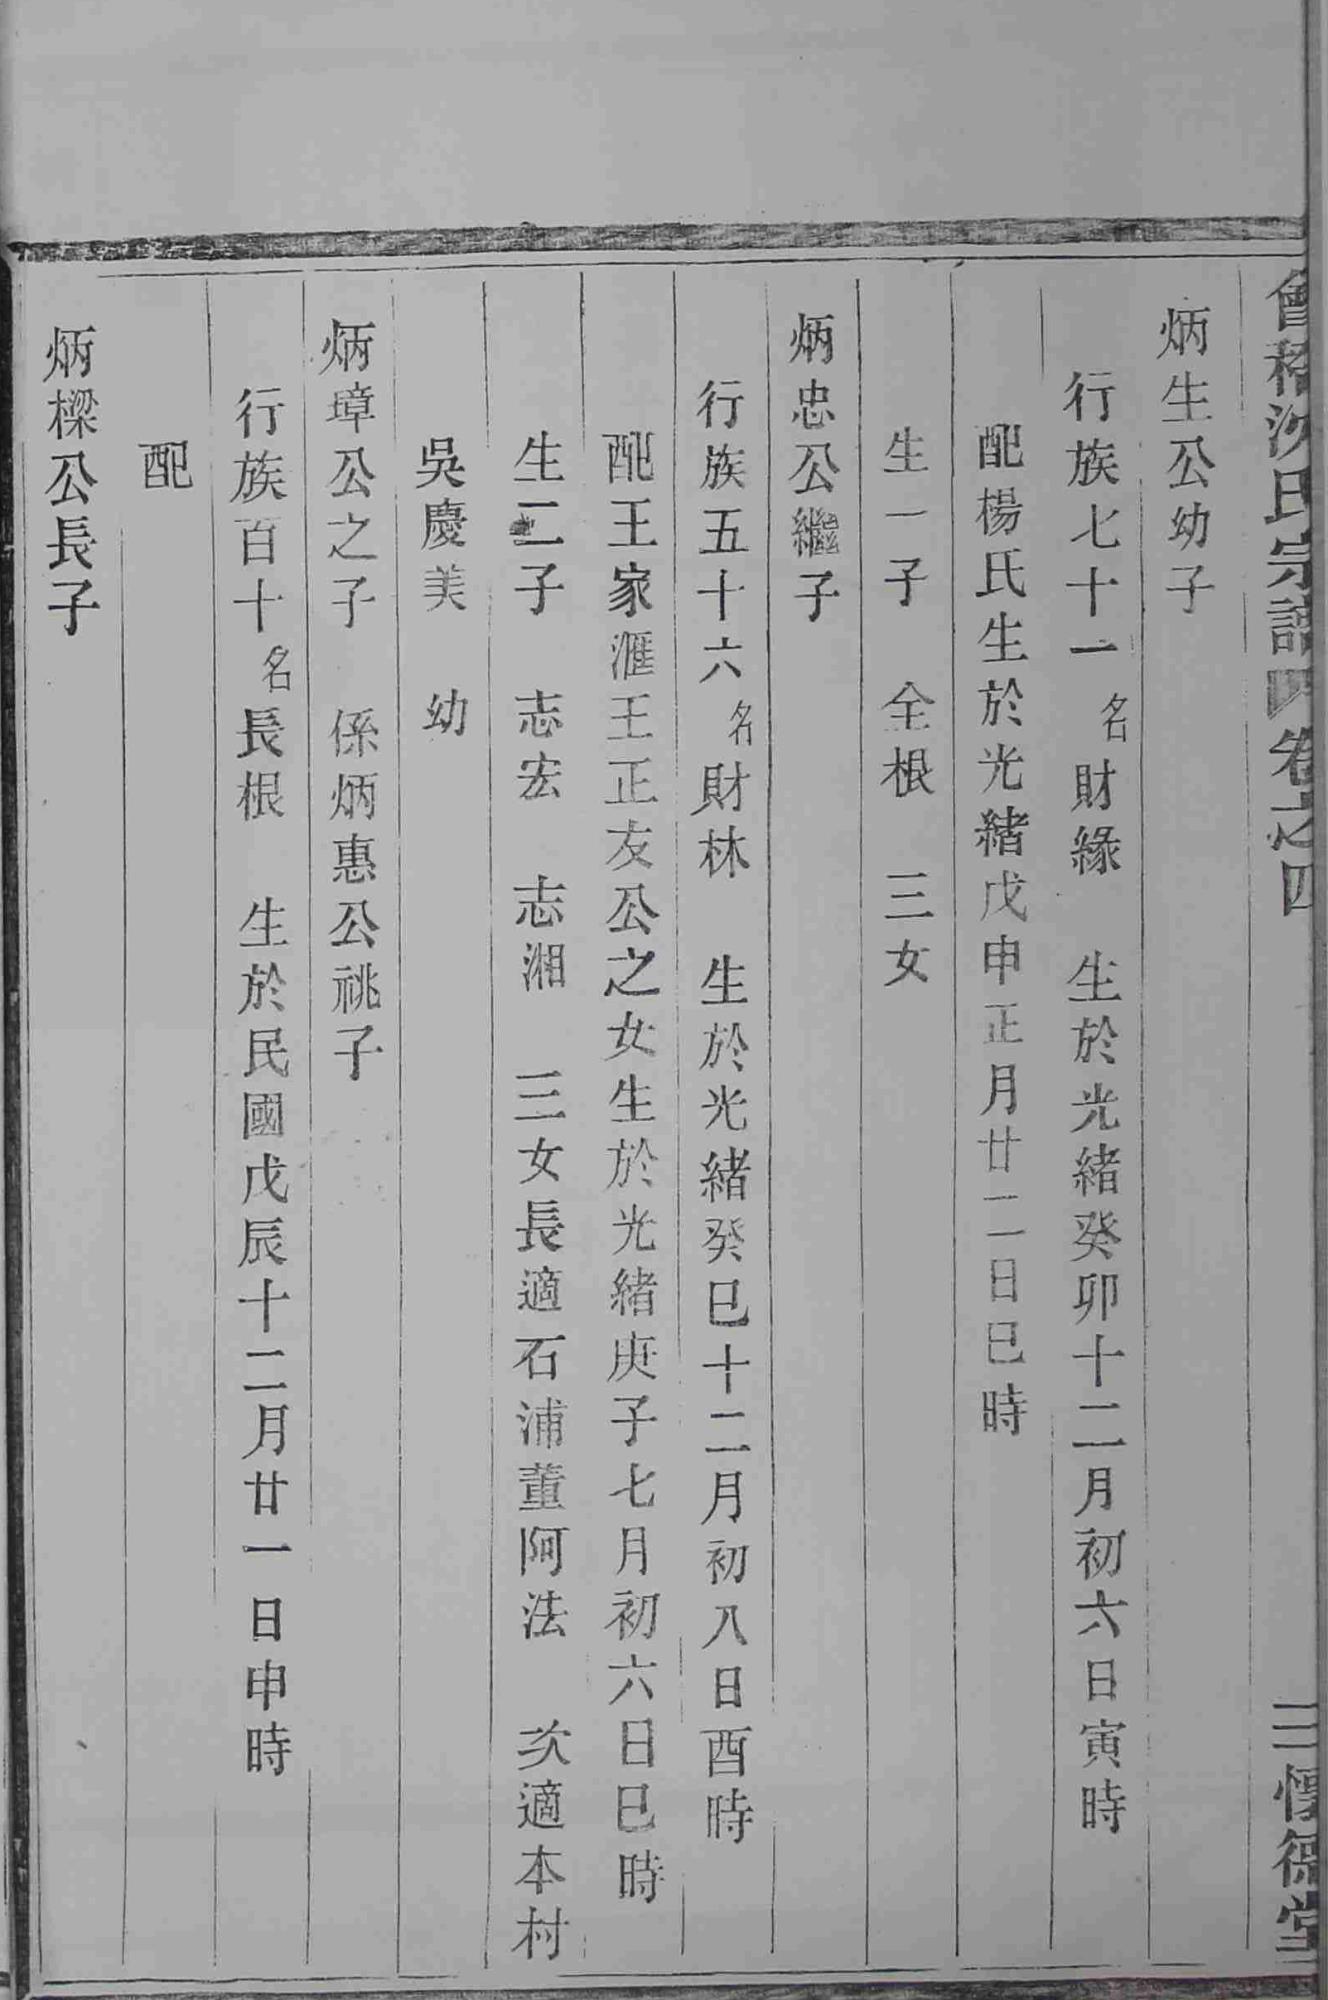 會稽沈氏宗譜 卷之四 三 德堂
炳生公幼子
行族七十一 名財緣 生於光緒癸卯十二月初六日寅時
配楊氏生於光緒戊申正月廿二日巳時
生一子 全根 三女
炳忠公繼子
行族五十六 名財林 生於光緒癸巳十二月初八日酉時
配王家滙王正友公之女生於光緒庚子七月初六日巳時
生二子 志宏 志湘 三女長適石浦董阿法 次適本村
吳慶美 幼
炳璋公之子 係炳惠公祧子
行族百十 名長根 生於民國戊辰十二月廿一日申時
配
炳樑公長子